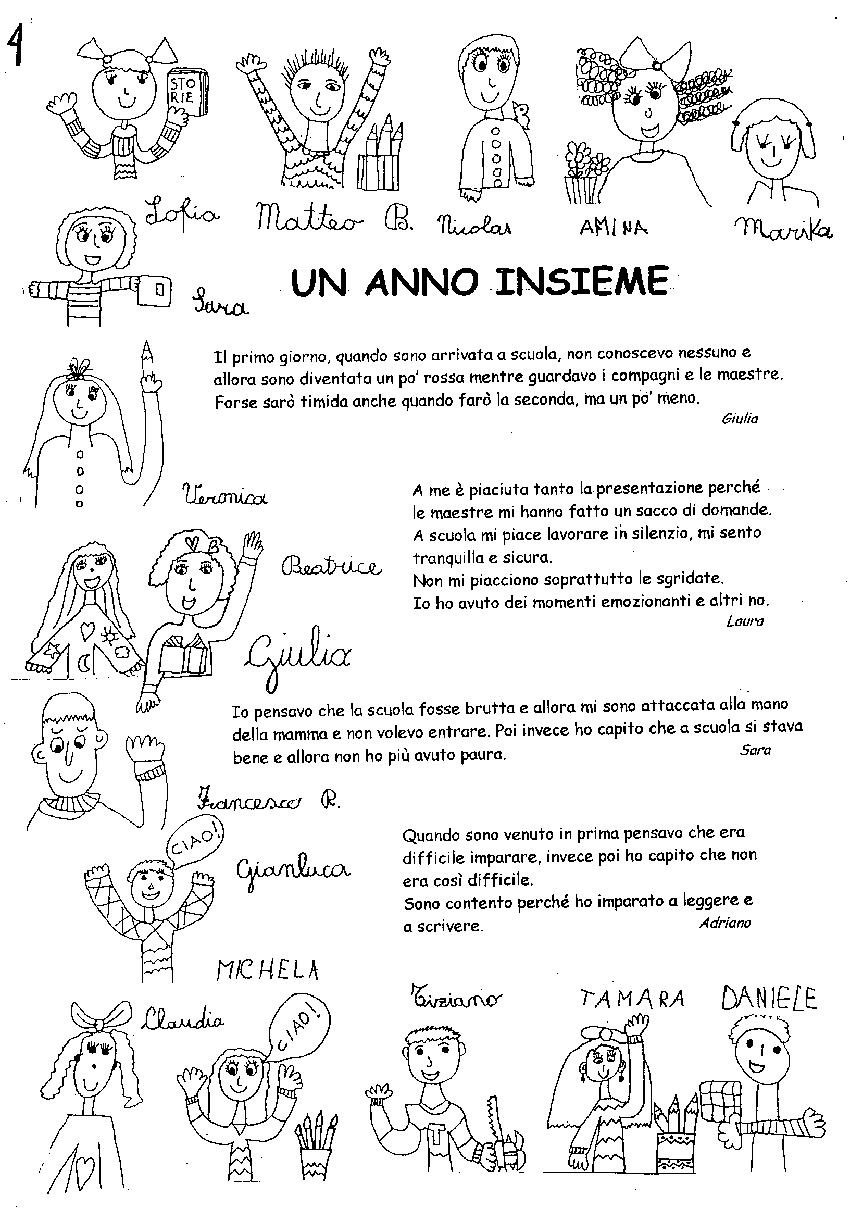 4
STO
RIE
Sofia
Matteo B.
Nicolas
AMINA
Marika
Sara
UN ANNO INSIEME
Il primo giorno, quando sono arrivata a scuola, non conoscevo nessuno e
allora sono diventata un po' rossa mentre guardavo i compagni e le maestre.
Forse sarò timida anche quando farò la seconda, ma un po' meno.
Giulia
Veronica
A me è piaciuta tanto la presentazione perché
le maestre mi hanno fatto un sacco di domande.
A scuola mi piace lavorare in silenzio, mi sento
tranquilla e sicura.
Non mi piacciono soprattutto le sgridate.
Io ho avuto dei momenti emozionanti e altri no.
Laura
Beatrice
B
Giulia
Io pensavo che la scuola fosse brutta e allora mi sono attaccata alla mano
della mamma e non volevo entrare. Poi invece ho capito che a scuola si stava
bene e allora non ho più avuto paura.
Sara
Francesco R.
CIAO!
Gianluca
Quando sono venuto in prima pensavo che era
difficile imparare, invece poi ho capito che non
era così difficile.
Sono contento perché ho imparato a leggere e
a scrivere.
Adriano
MICHELA
Claudia
CIAO!
Tiziano
TAMARA
DANIELE
T